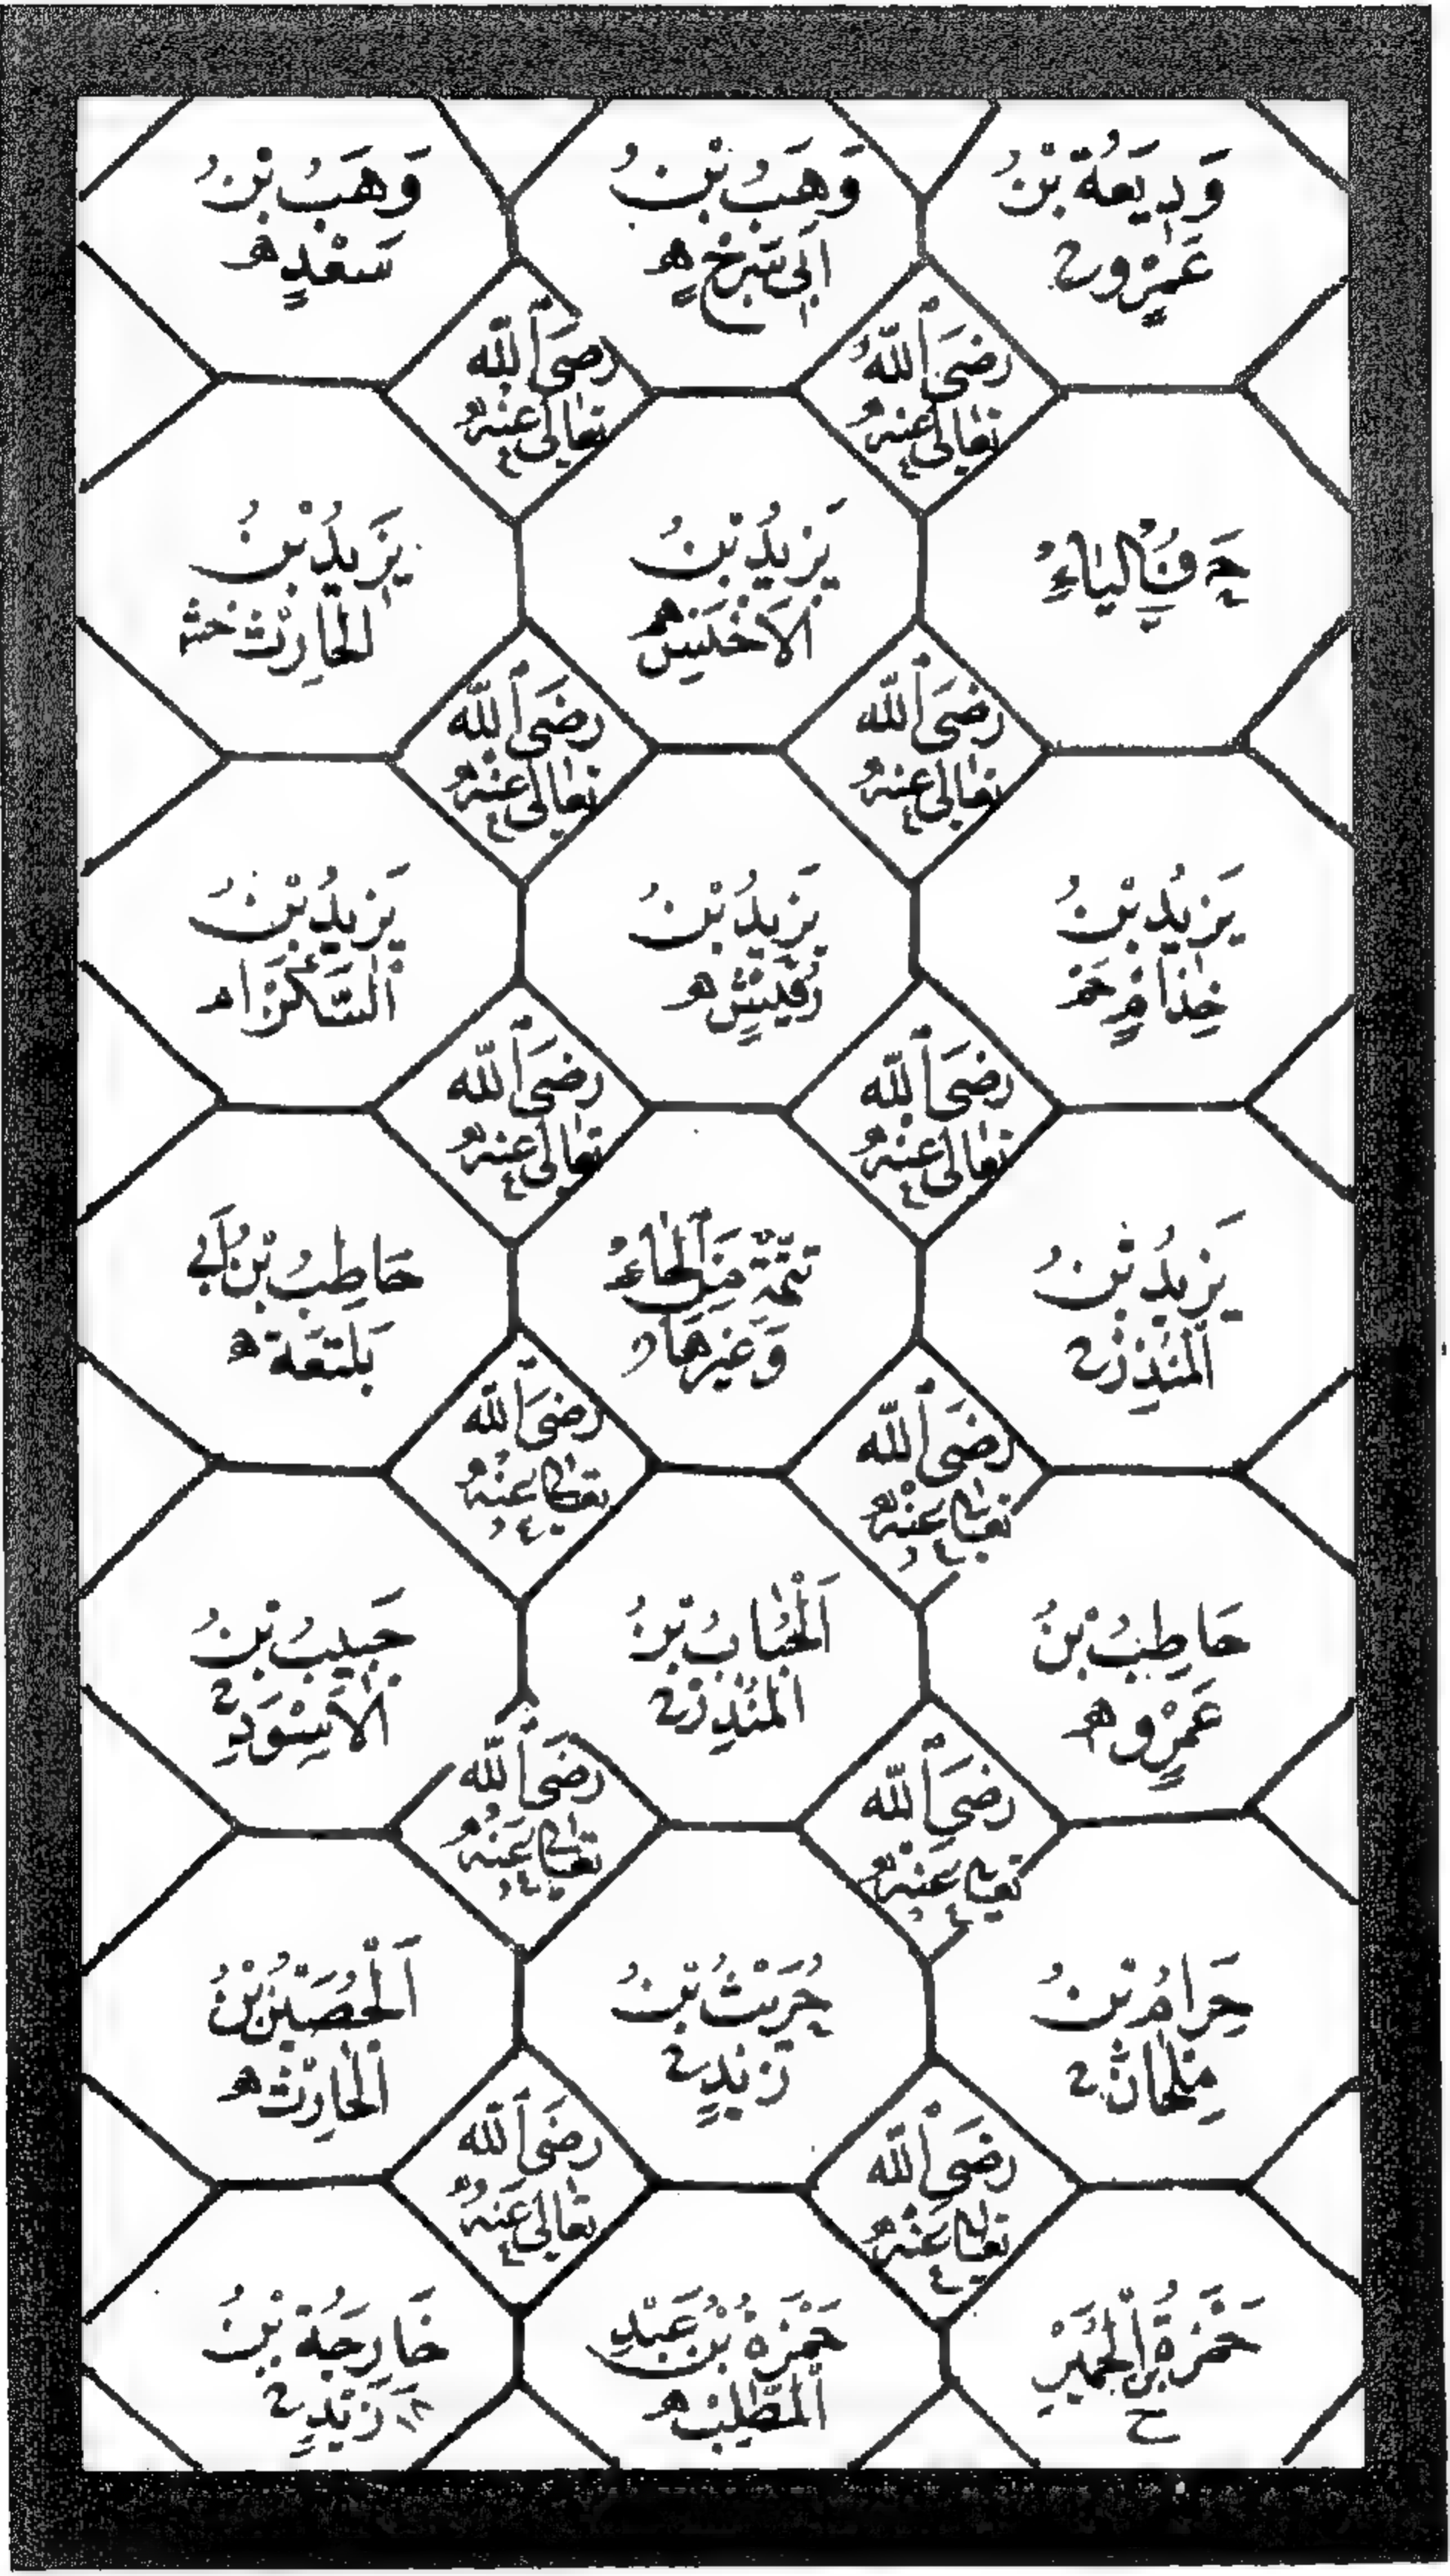 وَدِيعَةُ بْنُ
عَمْرٍو
وَهَبُ بْنُ
اَبِى سَرْحٍ هـ
وَهَبُ بْنُ
سَعْدٍ هـ
رَضِىَ اللّٰهُ
تَعَالٰى عَنْهُ
رَضِىَ اللّٰهُ
تَعَالٰى عَنْهُ
الْيَاءِ
يَزِيدُ بْنُ
الْاَخْنَسِ هـ
يَزِيدُ بْنُ
الْحَارِثِ
رَضِىَ اللّٰهُ
تَعَالٰى عَنْهُ
رَضِىَ اللّٰهُ
تَعَالٰى عَنْهُ
يَزِيدُ بْنُ
خِذَامٍ
يَزِيدُ بْنُ
رُقَيْشٍ هـ
يَزِيدُ بْنُ
السَّكَنِ
رَضِىَ اللّٰهُ
تَعَالٰى عَنْهُ
رَضِىَ اللّٰهُ
تَعَالٰى عَنْهُ
يَزِيدُ بْنُ
الْمُنْذِرِ
تَتِمَّةٌ مِنَ الْحَاءِ
وَغَيْرِهَا
حَاطِبُ بْنُ اَبِى
بَلْتَعَةَ هـ
رَضِىَ اللّٰهُ
تَعَالٰى عَنْهُ
رَضِىَ اللّٰهُ
تَعَالٰى عَنْهُ
حَاطِبُ بْنُ
عَمْرٍو هـ
اَلْحُبَابُ بْنُ
الْمُنْذِرِ
حَبِيبُ بْنُ
الْاَسْوَدِ
رَضِىَ اللّٰهُ
تَعَالٰى عَنْهُ
رَضِىَ اللّٰهُ
تَعَالٰى عَنْهُ
حَرَامُ بْنُ
مِلْحَانَ
حُرَيْثُ بْنُ
زَيْدٍ
اَلْحُصَيْنُ بْنُ
الْحَارِثِ هـ
رَضِىَ اللّٰهُ
تَعَالٰى عَنْهُ
رَضِىَ اللّٰهُ
تَعَالٰى عَنْهُ
حَمْزَةُ بْنُ الْحُمَيِّرِ
ح
حَمْزَةُ بْنُ عَبْدِ
الْمُطَّلِبِ هـ
خَارِجَةُ بْنُ
زَيْدٍ